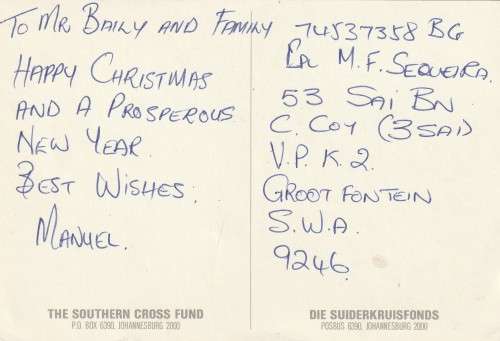 To Mr Baily and Family
Happy Christmas
and a Prosperous
New Year.
Best Wishes.
Manuel.
THE SOUTHERN CROSS FUND
P.O. BOX 6390, JOHANNESBURG 2000
74537358 BG
Cpl M.F. Sequeira.
53 Sai Bn
C. Coy (3SAI)
V.P.K.2.
Grootfontein
S.W.A.
9246.
DIE SUIDERKRUISFONDS
POSBUS 6390, JOHANNESBURG 2000